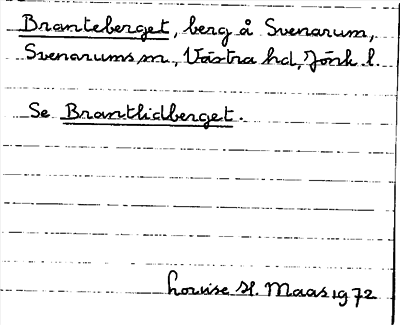 Branteberget, berg å Svenarum,
Svenarums sn., Västra hd, Jönk. l.
Se Brantlidberget.
Louise H. Maas 1972